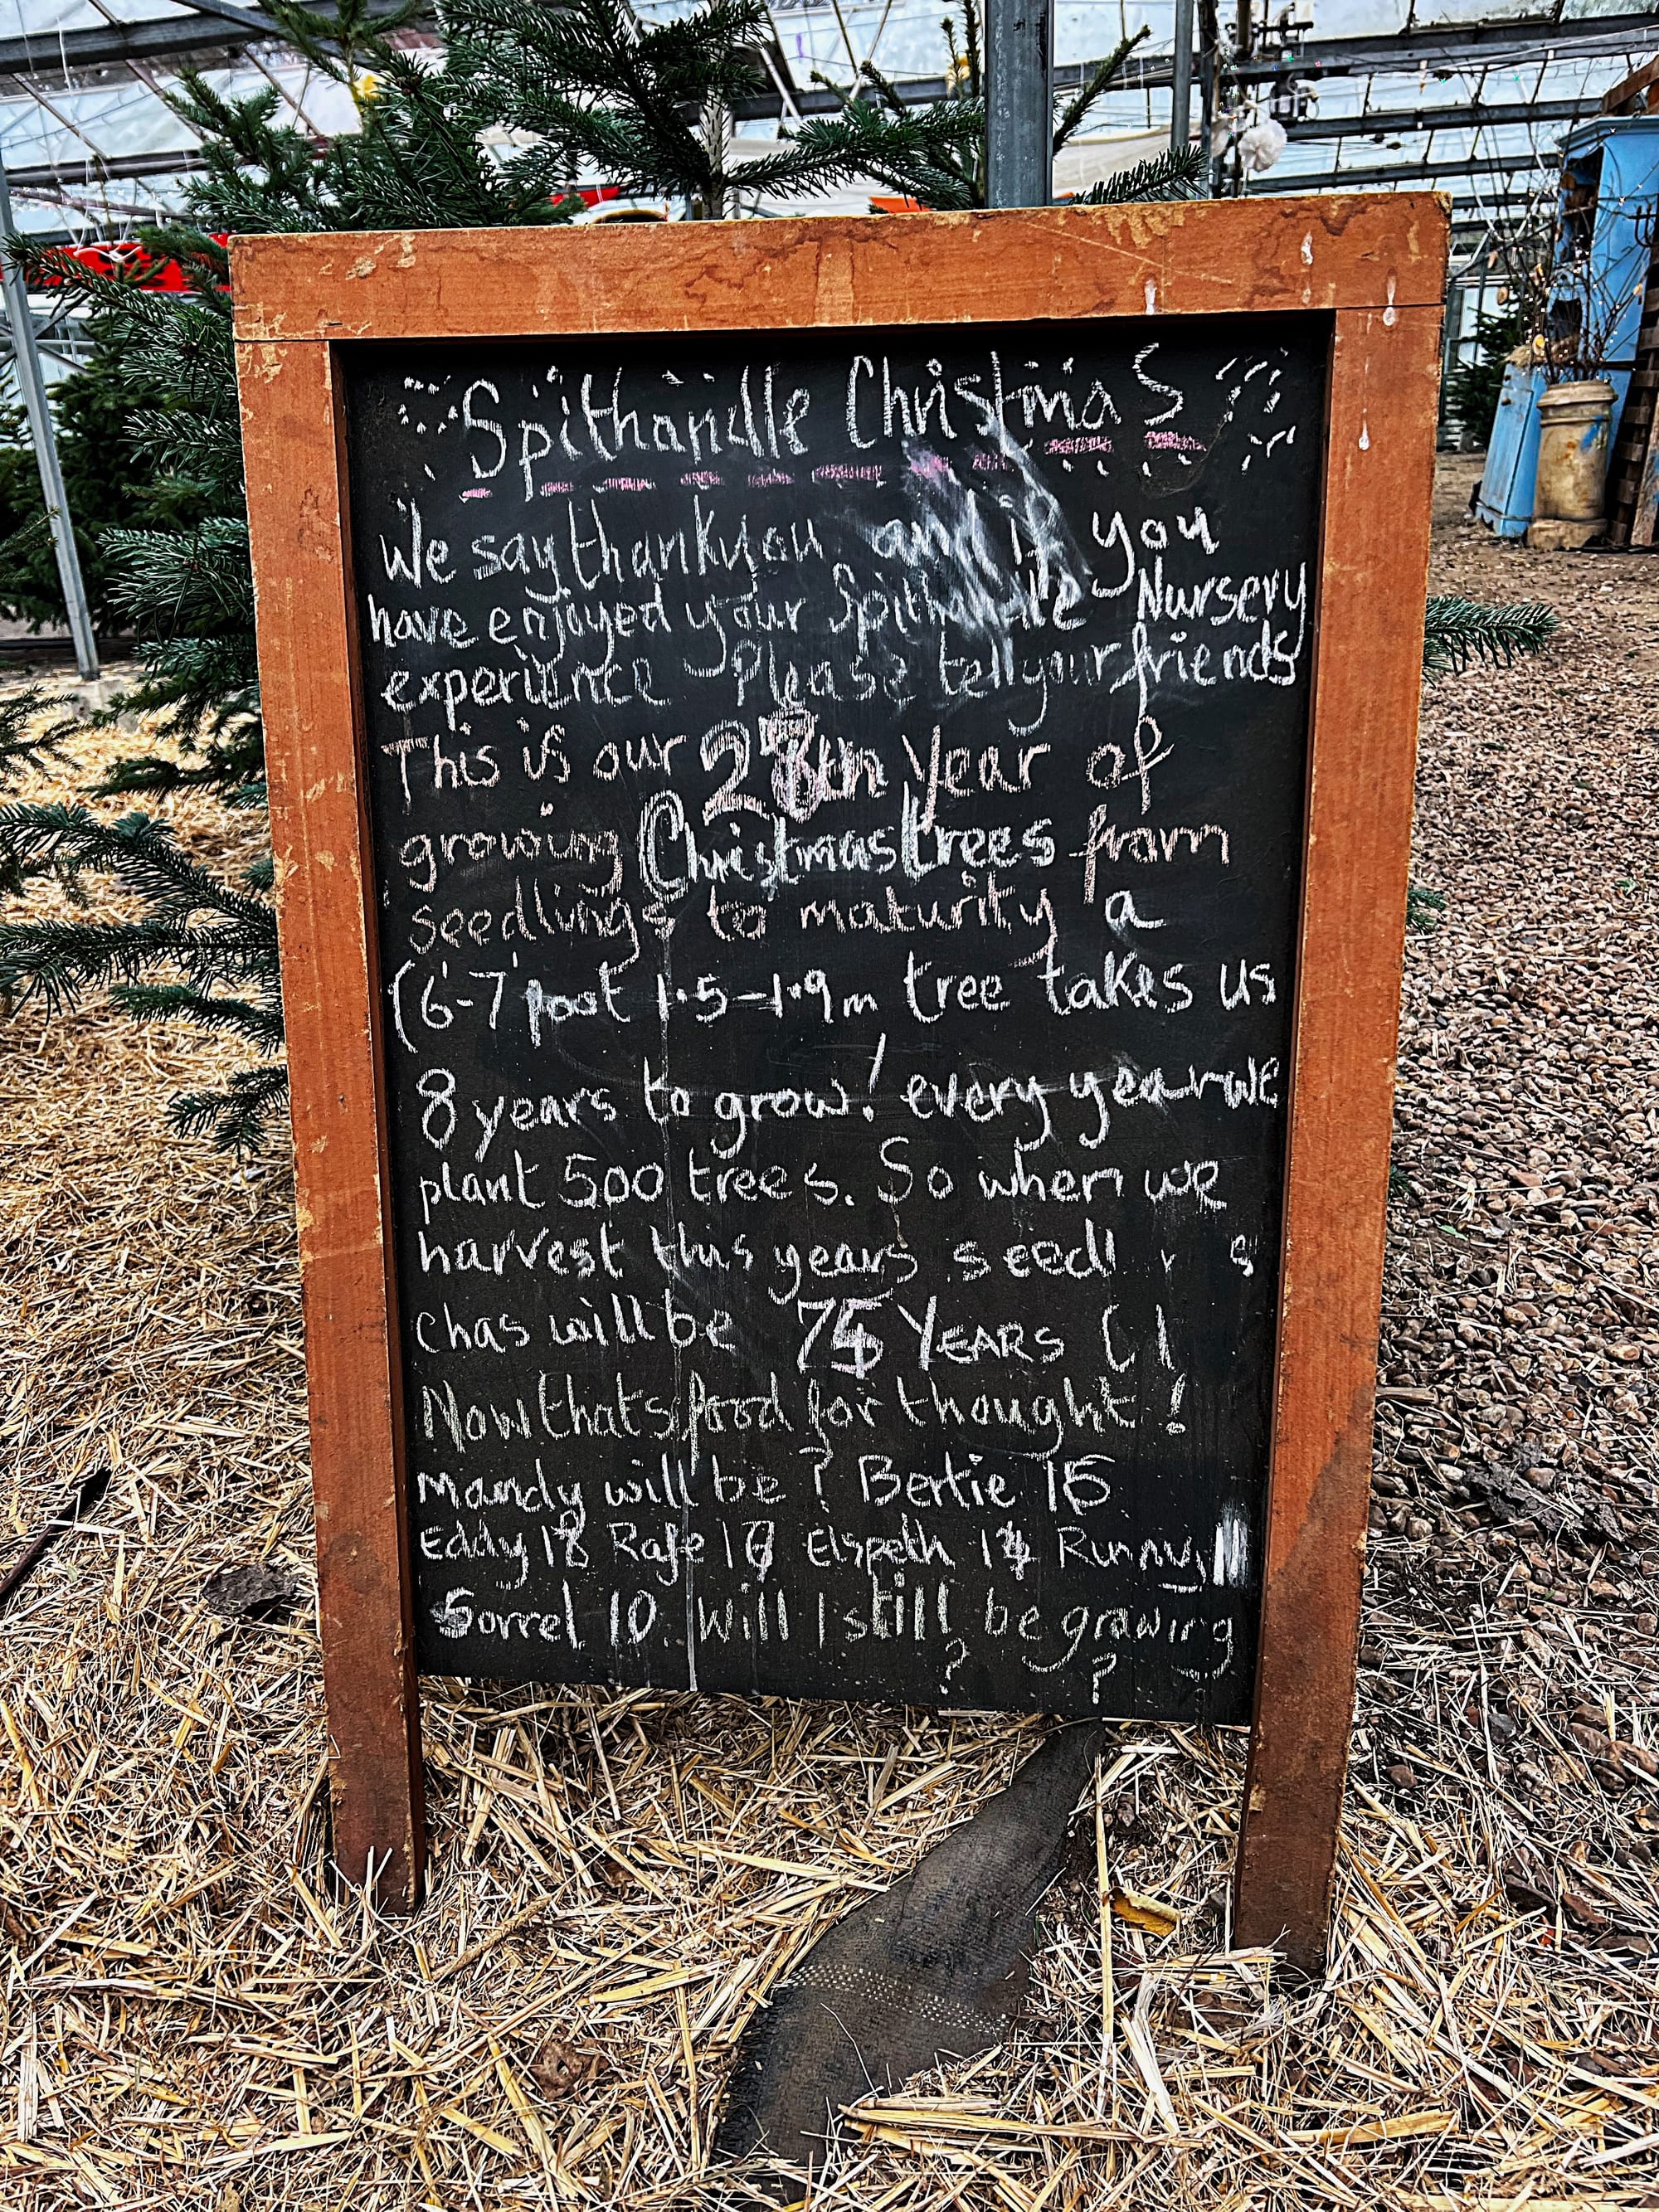 Spithandle Christmas
We say thankyou and if you
have enjoyed your Spithandle Nursery
experience Please tell your friends
This is our year of
growing Christmas trees from
seedlings to maturity a
(6-7 foot 1.5-1.9m tree takes us
8 years to grow! every year we
plant 500 trees. So when we
harvest this years
chas will be 75 YEARS
Now thats food for thought!
Mandy will be? Bertie 15
Eddy 18 Rafe Elspeth Runny
Sorrel 10. Will I still be growing
? ?